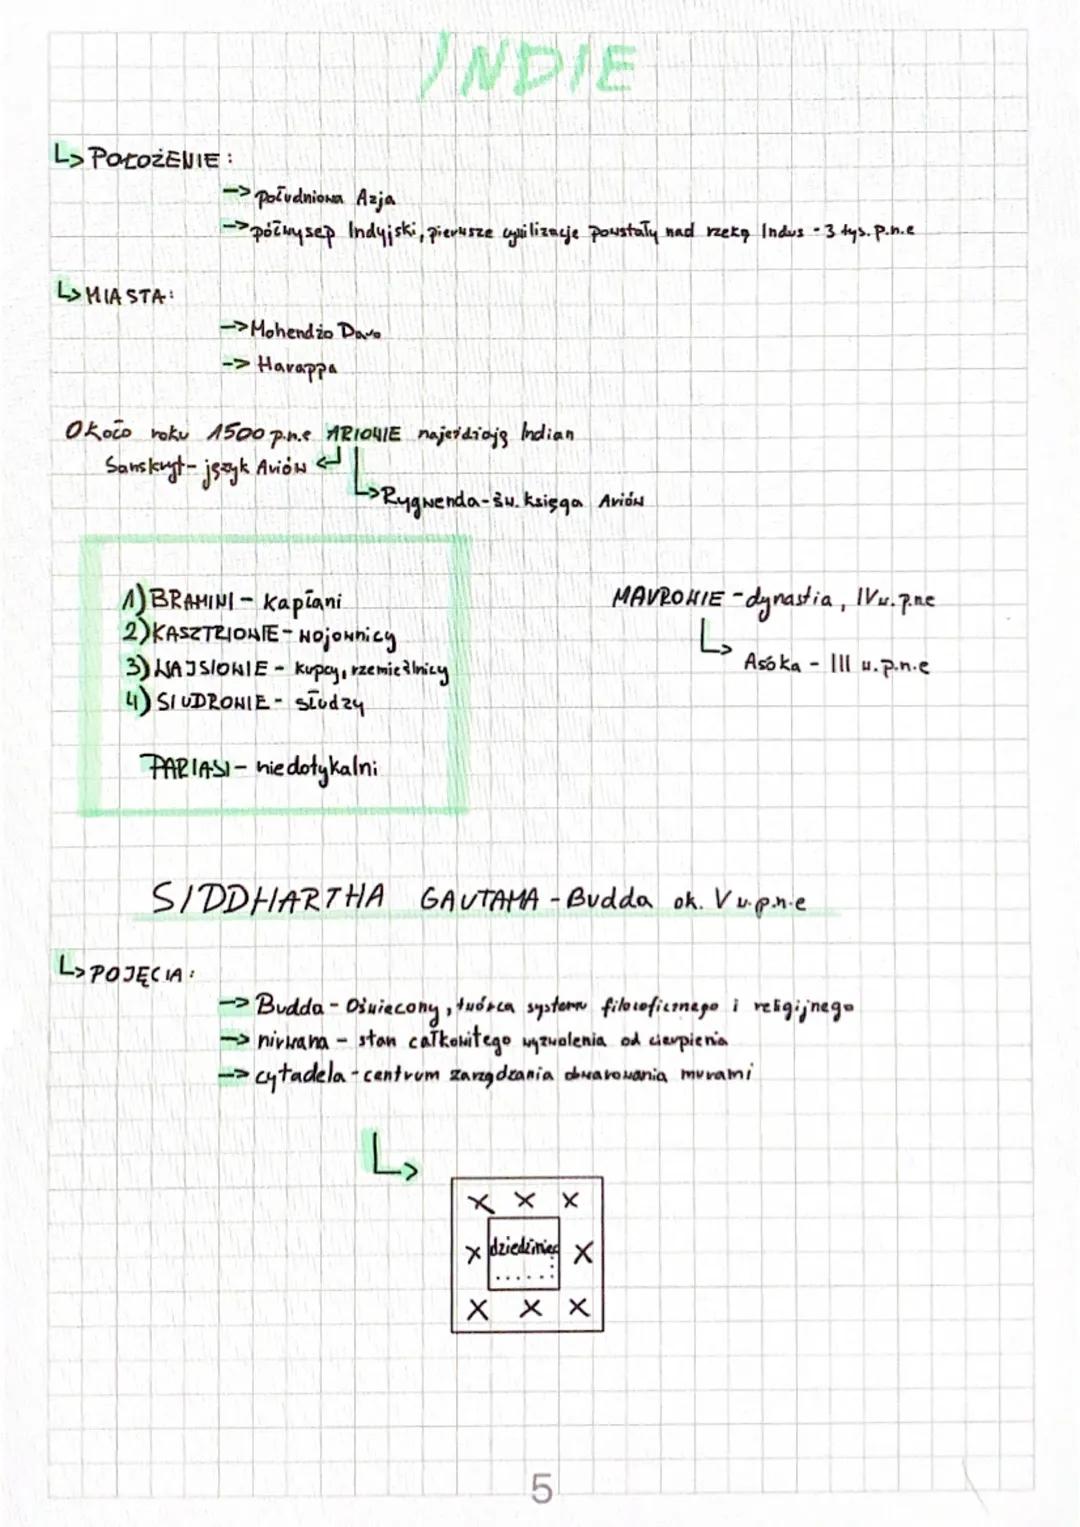 INDIE
↳ POŁOŻENIE:
-> południowa Azja
-> półwysep Indyjski, pierwsze cywilizacje powstały nad rzeką Indus - 3 tys. p.n.e
↳ MIASTA:
-> Mohendżo Daro
-> Harappa
Około roku 1500 p.n.e ARIOWIE najeżdżają Indian
Sanskryt - język Ariów
↳ Rygwenda - św. księga Ariów
1) BRAMINI - kapłani
2) KASZTRIOWIE - wojownicy
3) WAJSIOWIE - kupcy, rzemieślnicy
4) SIUDROWIE - słudzy
PARIASI - niedotykalni
MAUROWIE - dynastia, IV w. p.n.e
↳ Asóka - III w. p.n.e
SIDDHARTHA GAUTAMA - Budda ok. V w. p.n.e
↳ POJĘCIA:
-> Budda - Oświecony, twórca systemu filozoficznego i religijnego
-> nirwana - stan całkowitego wyzwolenia od cierpienia
-> cytadela - centrum zarządzania obwarowania murami
X X X
X dziedziniec X
X X X
5